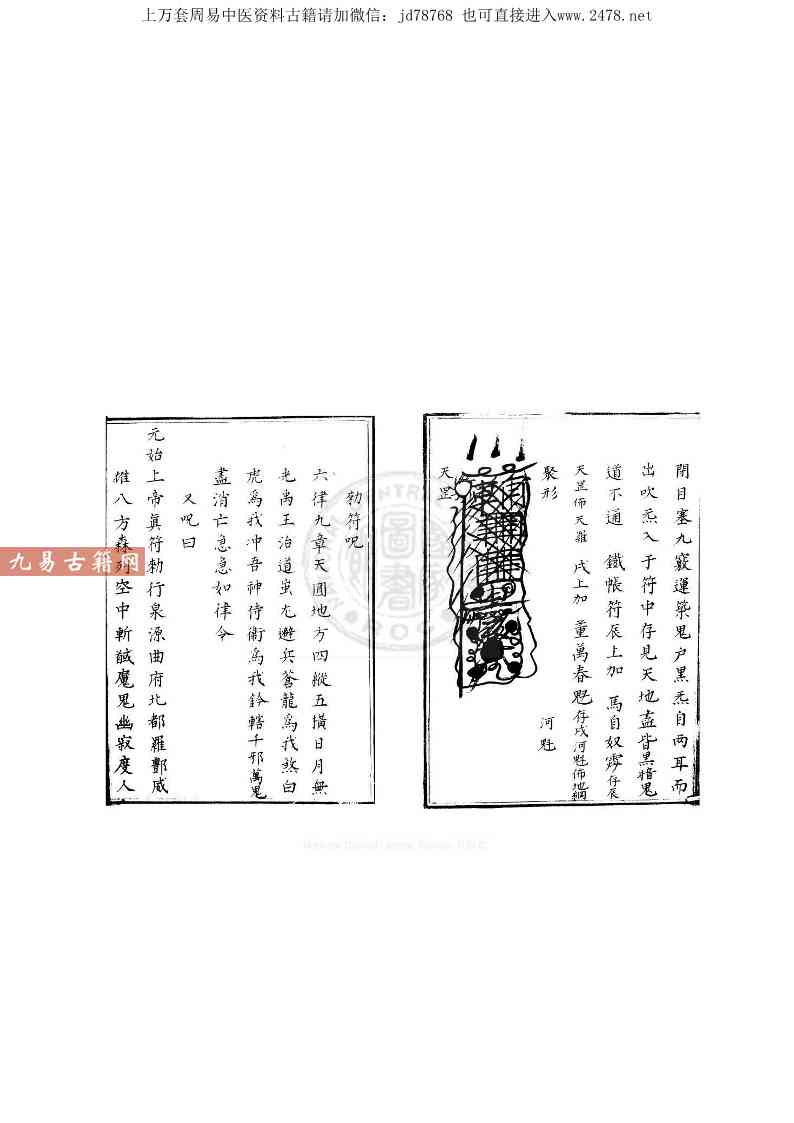 上万套周易中医资料古籍请加微信：jd78768 也可直接进入www.2478.net
閉目塞九竅運築鬼户黑炁自兩耳而
出吹炁入于符中存見天地盡皆黑暗鬼
道不通 鐵帳符辰上加 馬自奴雺存辰
天罡佈天羅 戌上加 董萬春魁存戌河魁佈地網
聚形
河魁
天罡
勑符呪
六律九章天圓地方四縱五橫日月無
光禹王治道蚩尤避兵蒼龍爲我煞白
虎爲我冲吾神侍衛爲我鈐轄千邪萬鬼
盡消亡急急如律令
又呪曰
元始上帝真符勑行泉源曲府北都羅酆威
摧八方森列空中斬馘魔鬼幽寂度人
九易古籍网